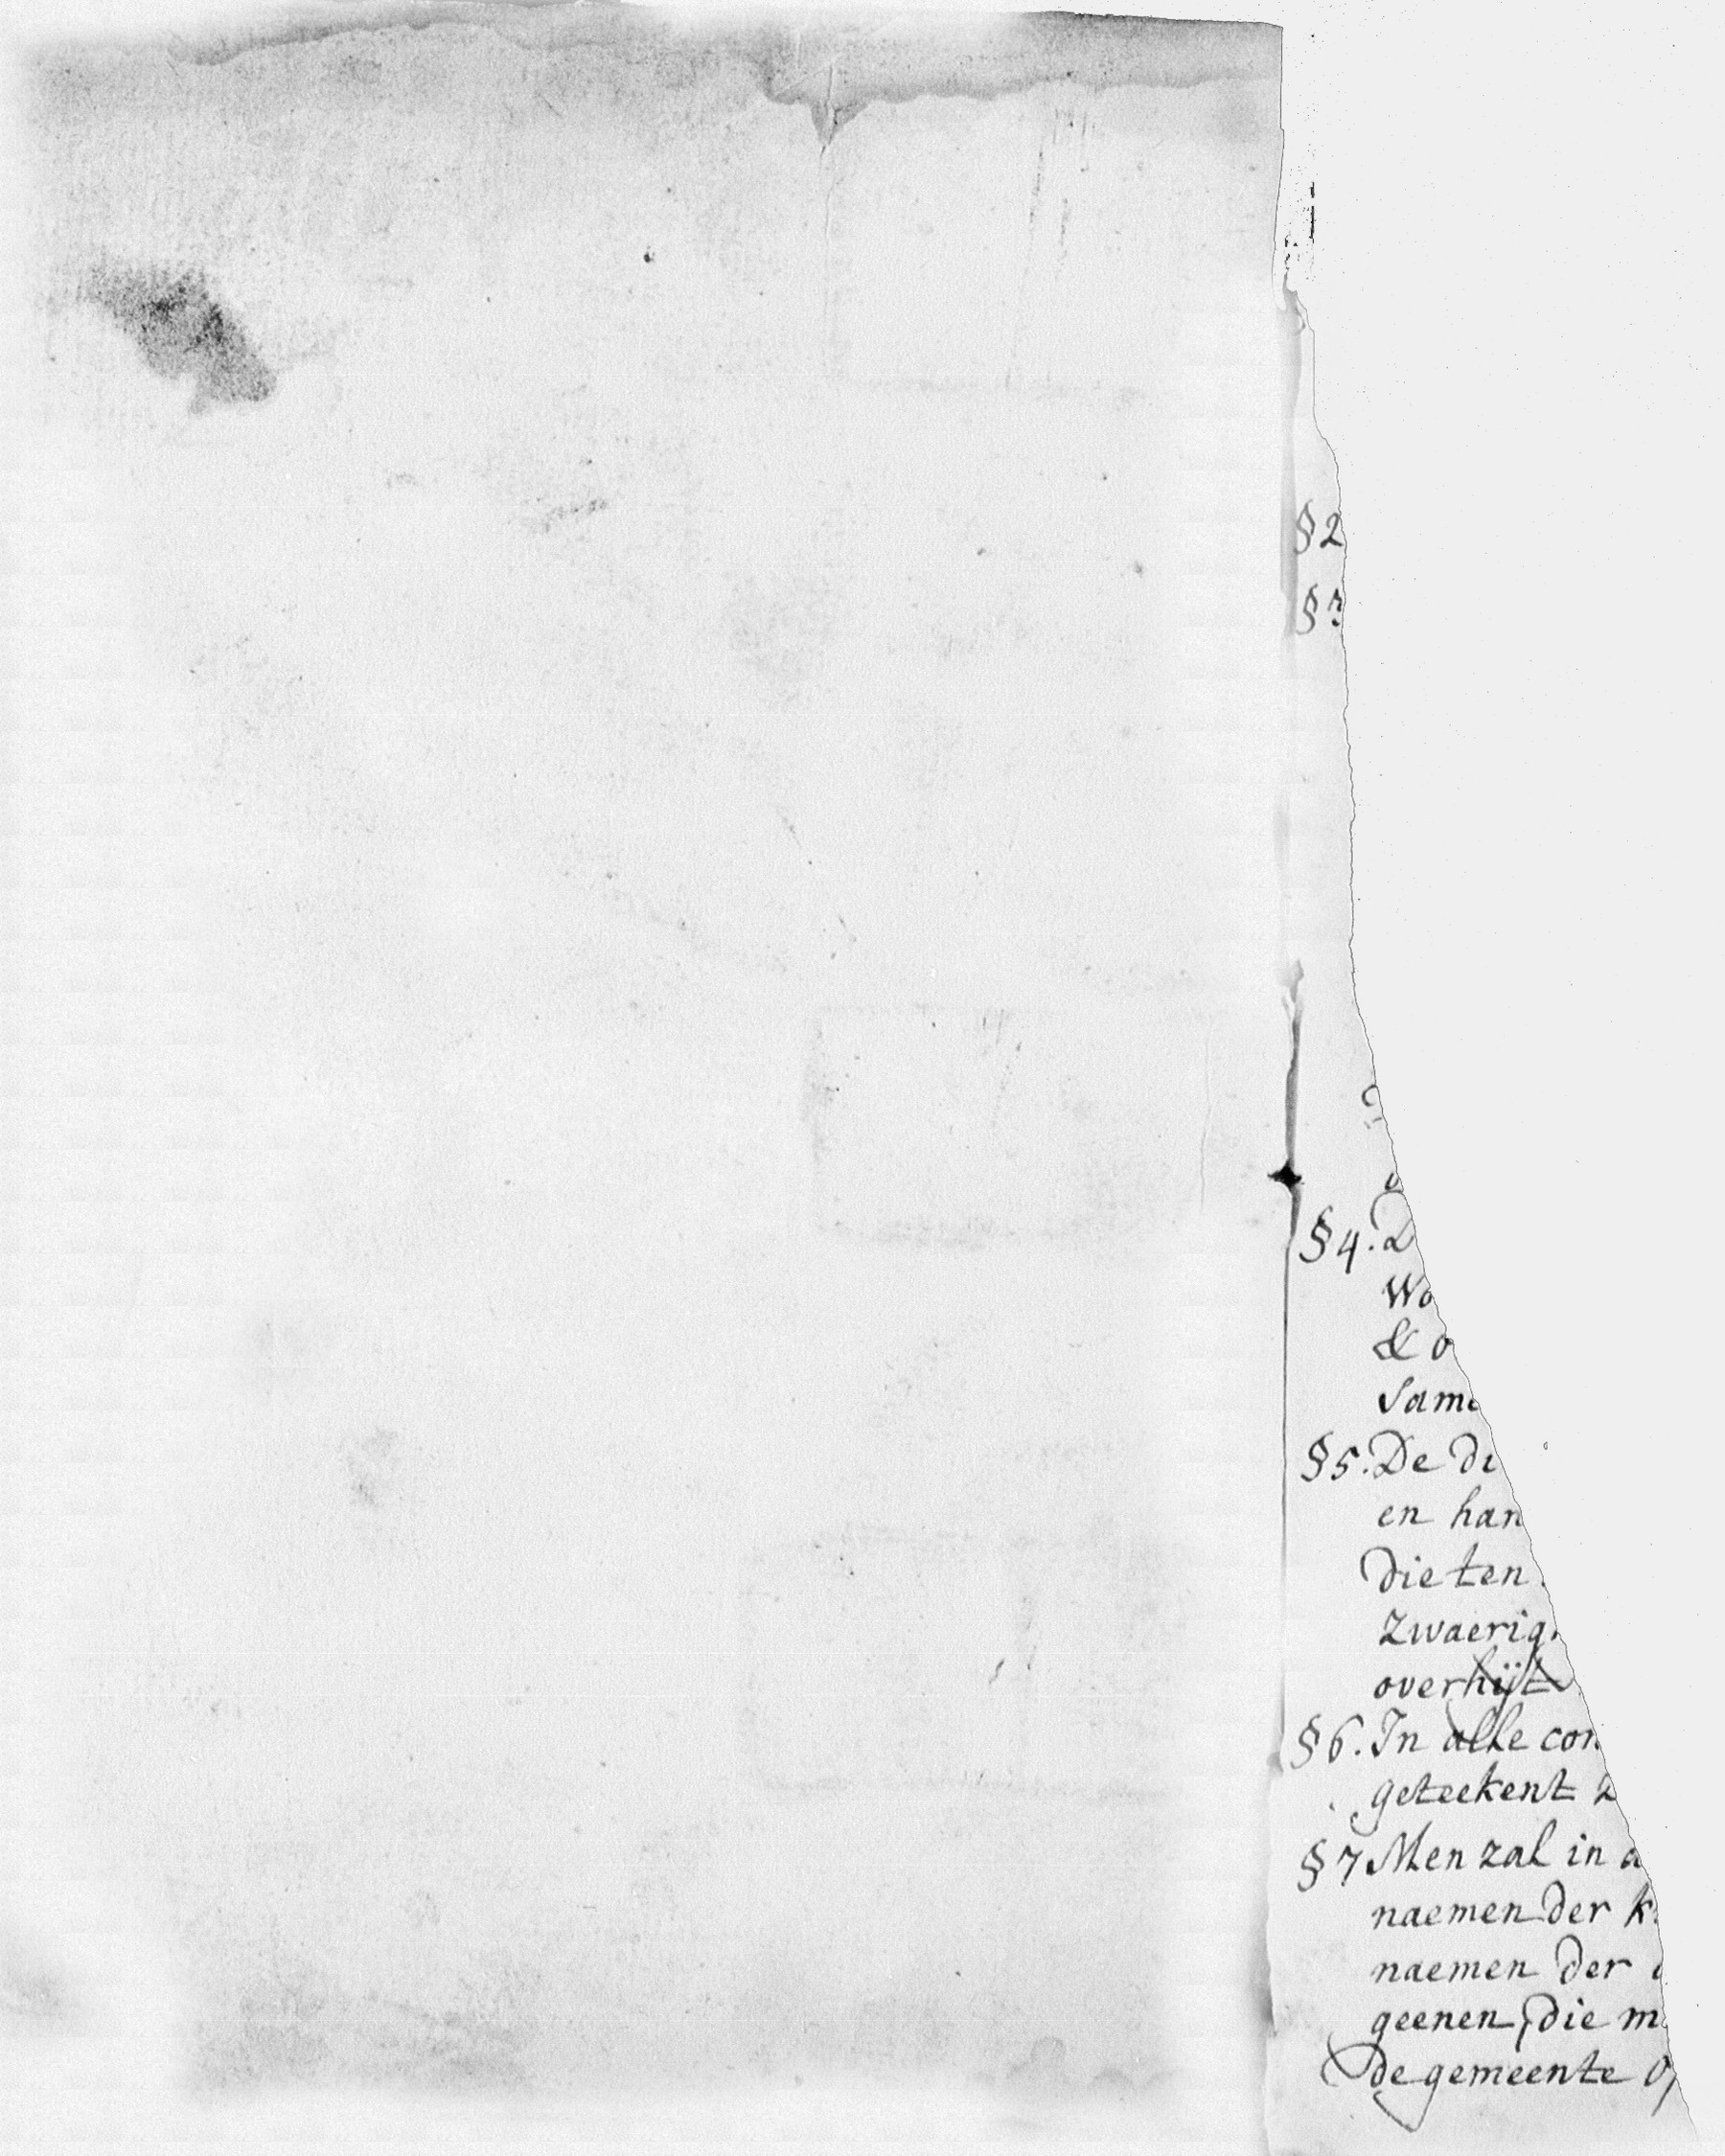 § 2
§ 3
§ 4. D
Wo
& o
Same
§ 5. De di
en han
die ten
zwaerig
overhijt
§ 6. In alle con
geteekent z
§ 7 Men zal in a
naemen der k
naemen der
geenen, die m
de gemeente o